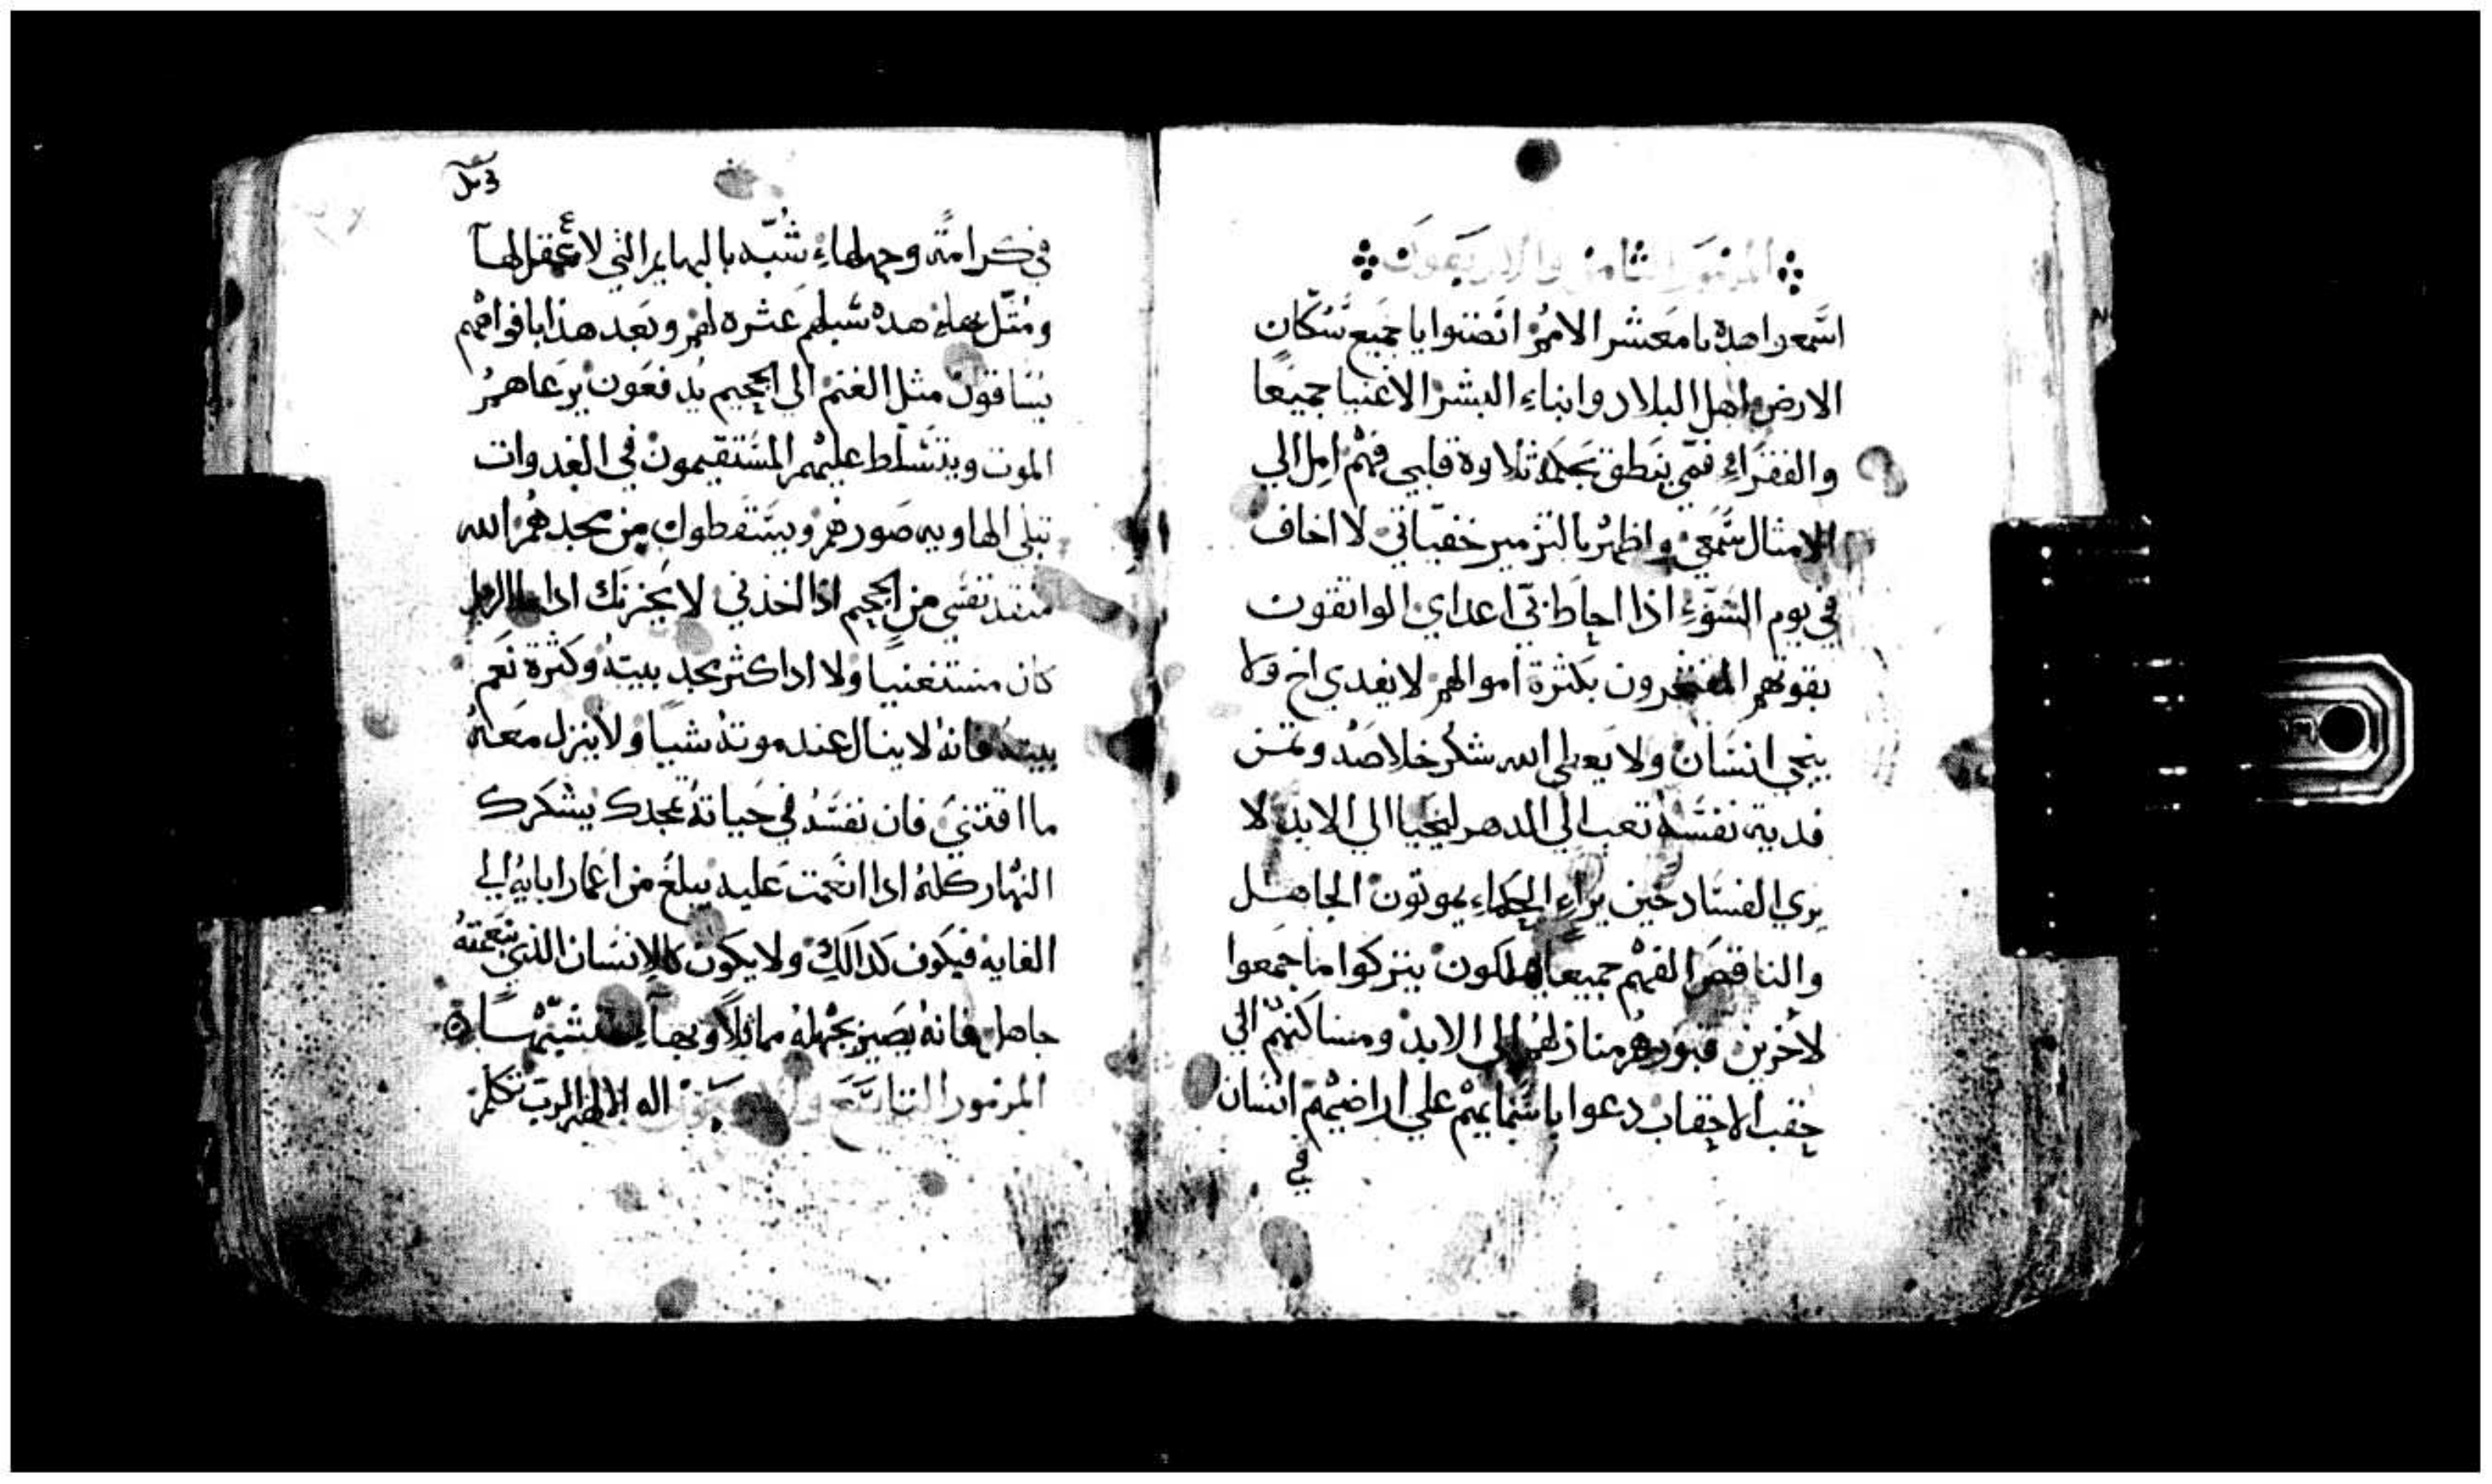 المزمور الثامن والاربعون
اسمعوا هذه يا معشر الامم انصتوا يا جميع سكان
الارض اهل البلاد وابناء البشر الاغنيا جميعا
والفقراء فمي ينطق بحكمه تلاوة قلبي فهم امل الي
الامثال سمعي واظهر بالتزمير خفياتي لا اخاف
في يوم السوء اذا احاط بي اعداي الواثقون
بقوتهم المفتخرون بكثرة اموالهم لا يفدي اخ ولا
ينجي انسان ولا يعطي الله شكر خلاصه وثمن
فدية نفسه تعب الي الدهر ليحيا الي الابد لا
يري الفساد حين يراء الحكماء يموتون الجاهل
والناقص الفهم جميعا يهلكون يتركوا ما جمعوا
لاخرين قبورهم منازلهم الي الابد ومساكنهم الي
حقب الاحقاب دعوا باسمايهم علي اراضيهم انسان
في
في كرامته وجهلهاء شبه بالبهايم التي لا عقل لها
ومثل بها هذه سبلهم عثره لهم وبعد هذا بافواههم
يساقون مثل الغنم الي الجحيم يدفعون يرعاهم
الموت ويتسلط عليهم المستقيمون في الغدوات
تبلي الهاويه صورهم ويسقطوا من مجدهم الله
منقذ نفسي من الجحيم اذا اخذني لا يحزنك اذا الرجل
كان مستغنيا ولا اذا كثر مجد بيته وكثرة نعم
بيته فانه لا ينال عند موته شيا ولا ينزل معه
ما اقتني فان نفسه في حياته تمجدك يشكرك
النهار كله اذا انعمت عليه يبلغ من اعمار ابايه الي
الغايه فيكون كذالك ولا يكون كالانسان الذي بنعمته
جاهل فانه يصير بجهله مماثلا وبهآء متشبها
المزمور التاسع والاربعون اله الالهه الرب تكلم